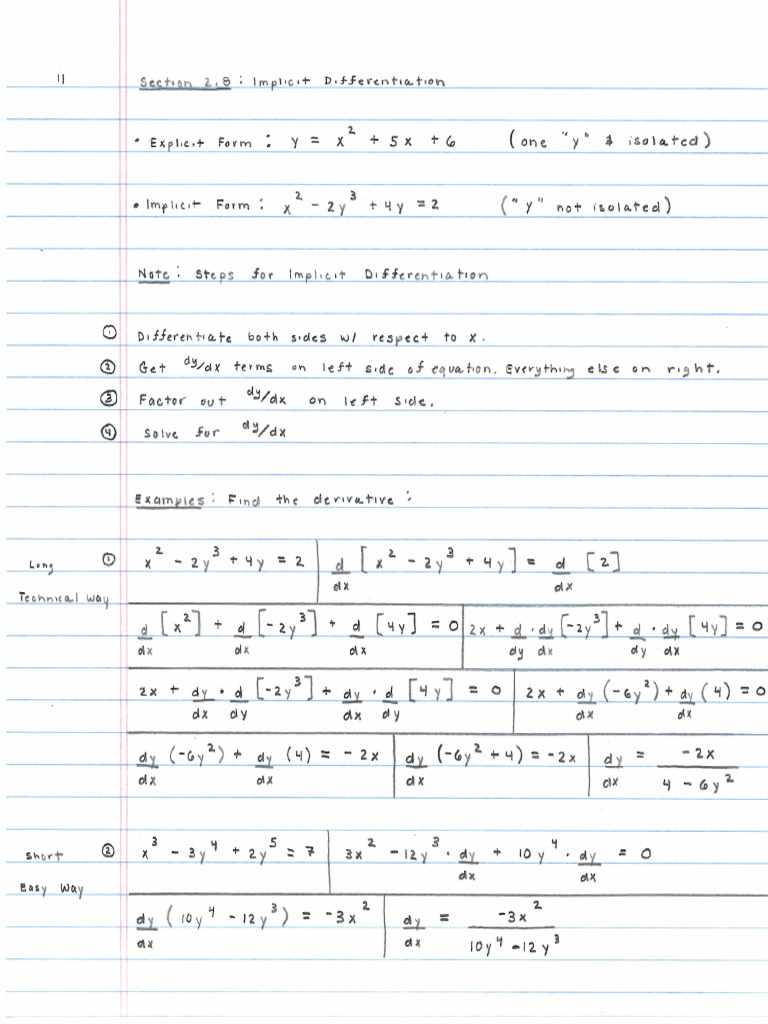 11 Section 2.8: Implicit Differentiation
• Explicit Form: y = x² + 5x + 6 (one "y" & isolated)
• Implicit Form: x² - 2y³ + 4y = 2 ("y" not isolated)
Note: Steps for Implicit Differentiation
① Differentiate both sides w/ respect to x.
② Get dy/dx terms on left side of equation. Everything else on right.
③ Factor out dy/dx on left side.
④ Solve for dy/dx
Examples: Find the derivative:
Long Technical Way ① x² - 2y³ + 4y = 2 | d/dx [x² - 2y³ + 4y] = d/dx [2]
d/dx [x²] + d/dx [-2y³] + d/dx [4y] = 0 | 2x + d/dy · dy/dx [-2y³] + d/dy · dy/dx [4y] = 0
2x + dy/dx · d/dy [-2y³] + dy/dx · d/dy [4y] = 0 | 2x + dy/dx (-6y²) + dy/dx (4) = 0
dy/dx (-6y²) + dy/dx (4) = -2x | dy/dx (-6y² + 4) = -2x | dy/dx = -2x / 4 - 6y²
Short Easy Way ② x³ - 3y⁴ + 2y⁵ = 7 | 3x² - 12y³ · dy/dx + 10y⁴ · dy/dx = 0
dy/dx (10y⁴ - 12y³) = -3x² | dy/dx = -3x² / 10y⁴ - 12y³